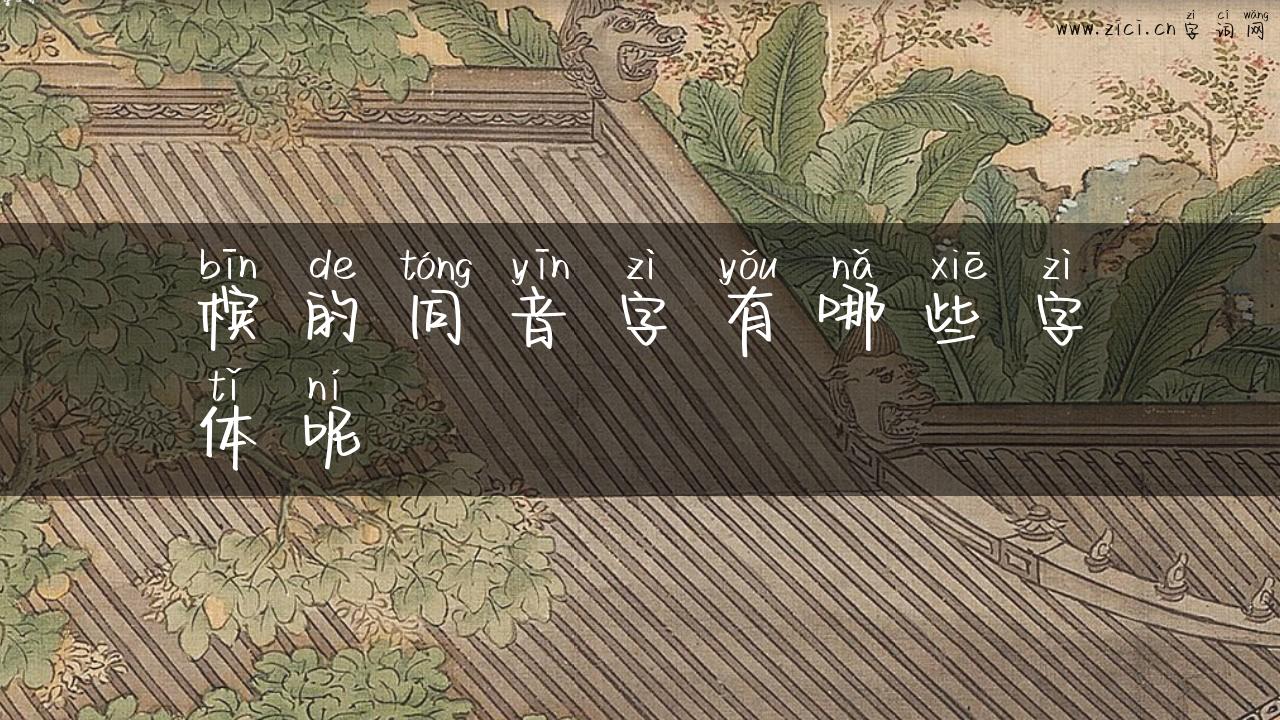 zì cí wǎng
www.zici.cn 字 词 网
bīn de tóng yīn zì yǒu nǎ xiē zì
槟 的 同 音 字 有 哪 些 字
tǐ ní
体 呢